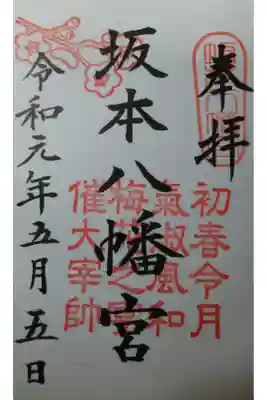 奉拝
坂本八幡宮
令和元年五月五日
初春令月
氣淑風和
梅花之宴
催大宰帥